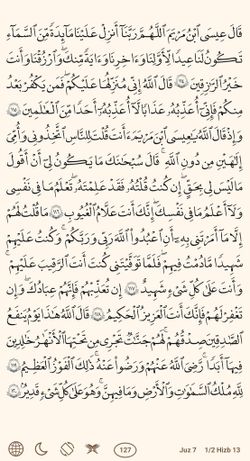 قَالَ عِيسَى ٱبْنُ مَرْيَمَ ٱللَّهُمَّ رَبَّنَآ أَنزِلْ عَلَيْنَا مَآئِدَةً مِّنَ ٱلسَّمَآءِ
تَكُونُ لَنَا عِيدًا لِّأَوَّلِنَا وَءَاخِرِنَا وَءَايَةً مِّنكَ ۖ وَٱرْزُقْنَا وَأَنتَ
خَيْرُ ٱلرَّٰزِقِينَ ١١٤ قَالَ ٱللَّهُ إِنِّى مُنَزِّلُهَا عَلَيْكُمْ ۖ فَمَن يَكْفُرْ بَعْدُ
مِنكُمْ فَإِنِّىٓ أُعَذِّبُهُۥ عَذَابًا لَّآ أُعَذِّبُهُۥٓ أَحَدًا مِّنَ ٱلْعَٰلَمِينَ ١١٥
وَإِذْ قَالَ ٱللَّهُ يَٰعِيسَى ٱبْنَ مَرْيَمَ ءَأَنتَ قُلْتَ لِلنَّاسِ ٱتَّخِذُونِى وَأُمِّىَ
إِلَٰهَيْنِ مِن دُونِ ٱللَّهِ ۖ قَالَ سُبْحَٰنَكَ مَا يَكُونُ لِىٓ أَنْ أَقُولَ
مَا لَيْسَ لِى بِحَقٍّ ۚ إِن كُنتُ قُلْتُهُۥ فَقَدْ عَلِمْتَهُۥ ۚ تَعْلَمُ مَا فِى نَفْسِى
وَلَآ أَعْلَمُ مَا فِى نَفْسِكَ ۚ إِنَّكَ أَنتَ عَلَّٰمُ ٱلْغُيُوبِ ١١٦ مَا قُلْتُ لَهُمْ
إِلَّا مَآ أَمَرْتَنِى بِهِۦٓ أَنِ ٱعْبُدُوا۟ ٱللَّهَ رَبِّى وَرَبَّكُمْ ۚ وَكُنتُ عَلَيْهِمْ
شَهِيدًا مَّا دُمْتُ فِيهِمْ ۖ فَلَمَّا تَوَفَّيْتَنِى كُنتَ أَنتَ ٱلرَّقِيبَ عَلَيْهِمْ ۚ
وَأَنتَ عَلَىٰ كُلِّ شَىْءٍ شَهِيدٌ ١١٧ إِن تُعَذِّبْهُمْ فَإِنَّهُمْ عِبَادُكَ ۖ وَإِن
تَغْفِرْ لَهُمْ فَإِنَّكَ أَنتَ ٱلْعَزِيزُ ٱلْحَكِيمُ ١١٨ قَالَ ٱللَّهُ هَٰذَا يَوْمُ يَنفَعُ
ٱلصَّٰدِقِينَ صِدْقُهُمْ ۚ لَهُمْ جَنَّٰتٌ تَجْرِى مِن تَحْتِهَا ٱلْأَنْهَٰرُ خَٰلِدِينَ
فِيهَآ أَبَدًا ۚ رَّضِىَ ٱللَّهُ عَنْهُمْ وَرَضُوا۟ عَنْهُ ۚ ذَٰلِكَ ٱلْفَوْزُ ٱلْعَظِيمُ ١١٩
لِلَّهِ مُلْكُ ٱلسَّمَٰوَٰتِ وَٱلْأَرْضِ وَمَا فِيهِنَّ ۚ وَهُوَ عَلَىٰ كُلِّ شَىْءٍ قَدِيرٌۢ ١٢٠
127 Juz 7 1/2 Hizb 13